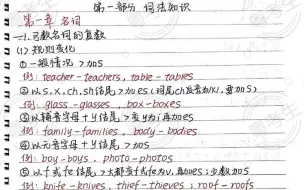 第一部分 词法知识
第一章 名词
一.可数名词的复数
(1) 规则变化
① 一般情况 > 加S
例: teacher-teachers, table-tables
② 以s.x.ch.sh结尾 > 加es (词尾ch发音为k, 要加s)
例: glass-glasses, box-boxes
③ 以辅音字母+y结尾 > 变y为i再加es
例: family-families, body-bodies
④ 以元音字母+y结尾 > 加S
例: boy-boys, photo-photos
⑤ 以f或fe结尾 > 大都变f或fe为v, 再加es; 少数加S
例: knife-knives, thief-thieves; roof-roofs